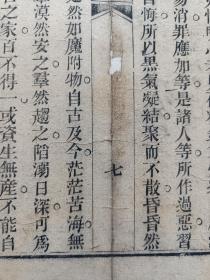 易消罪應加等是諸人等所作過惡習
悔所以黑氣凝結聚而不散昏昏然
七
然如魔附物自古及今茫茫苦海無
漠然安之羣然趨之陷溺日深可爲
之家百不得一或資生無產不能自